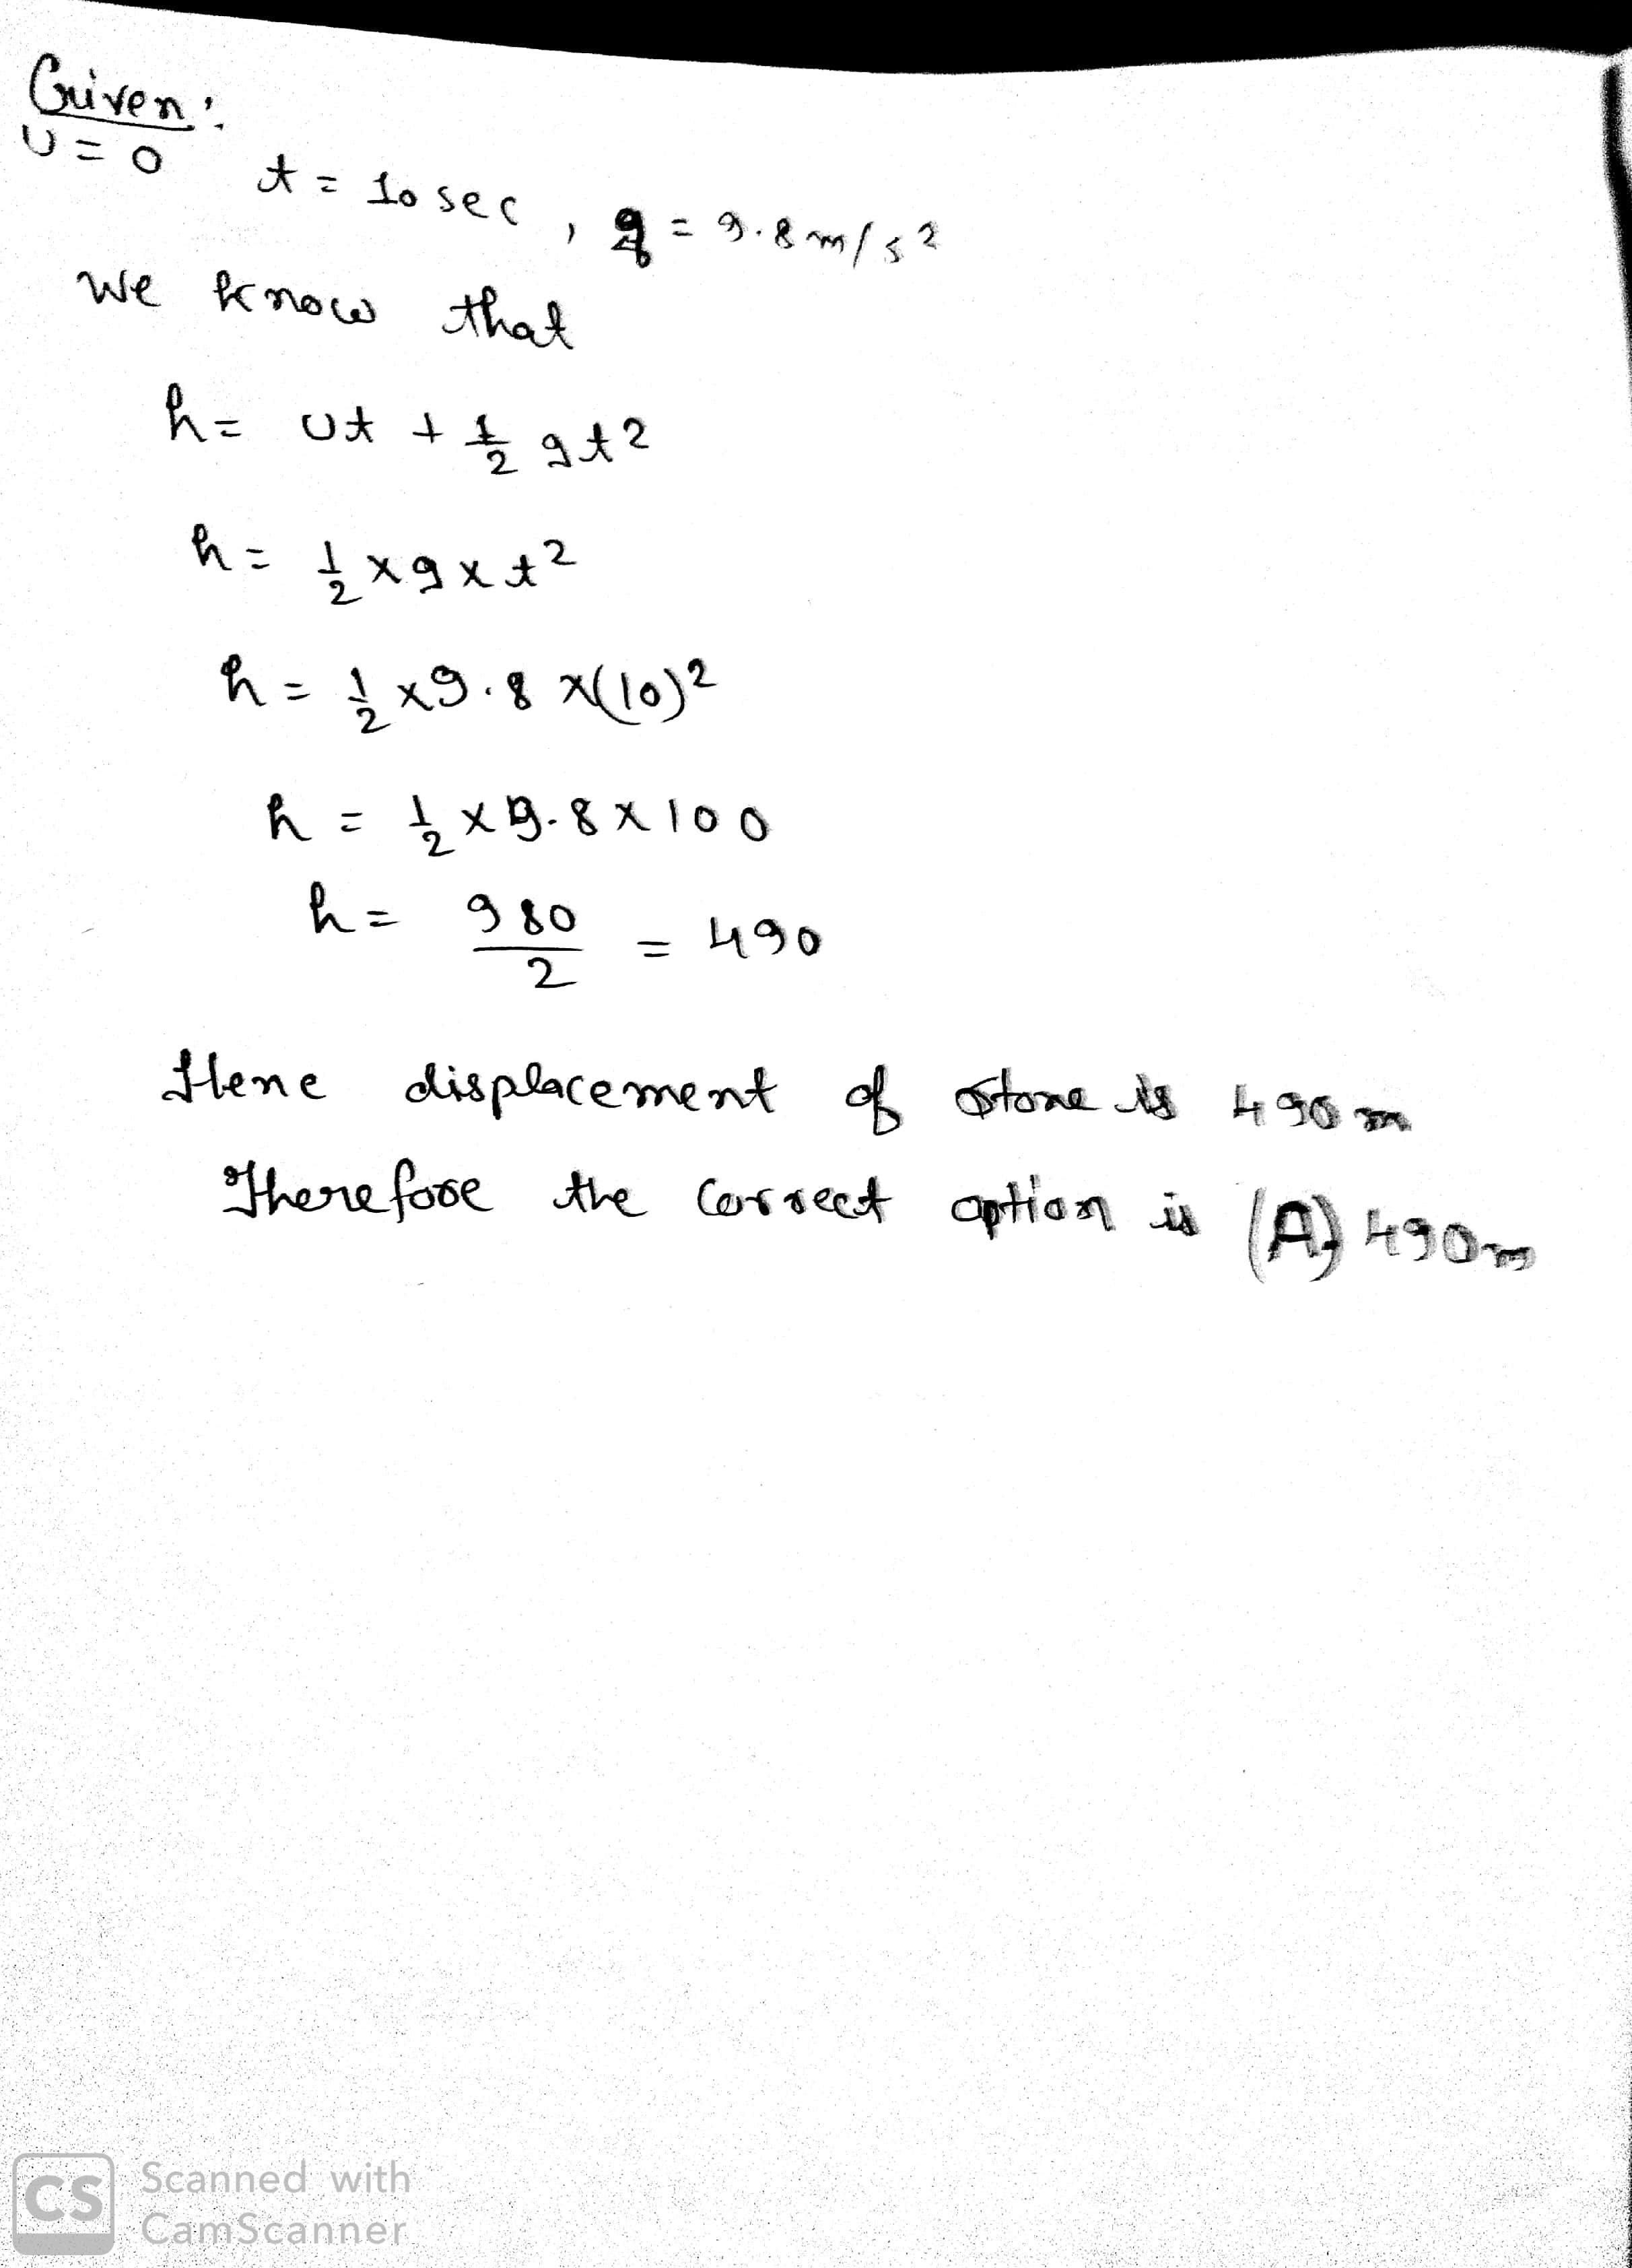 Given:
U = 0
t = 10 sec , g = 9.8 m/s²
We know that
h = ut + 1/2 gt²
h = 1/2 × g × t²
h = 1/2 × 9.8 × (10)²
h = 1/2 × 9.8 × 100
h = 980/2 = 490
Hene displacement of stone is 490 m
Therefore the correct option is (A) 490m
CS Scanned with
CamScanner